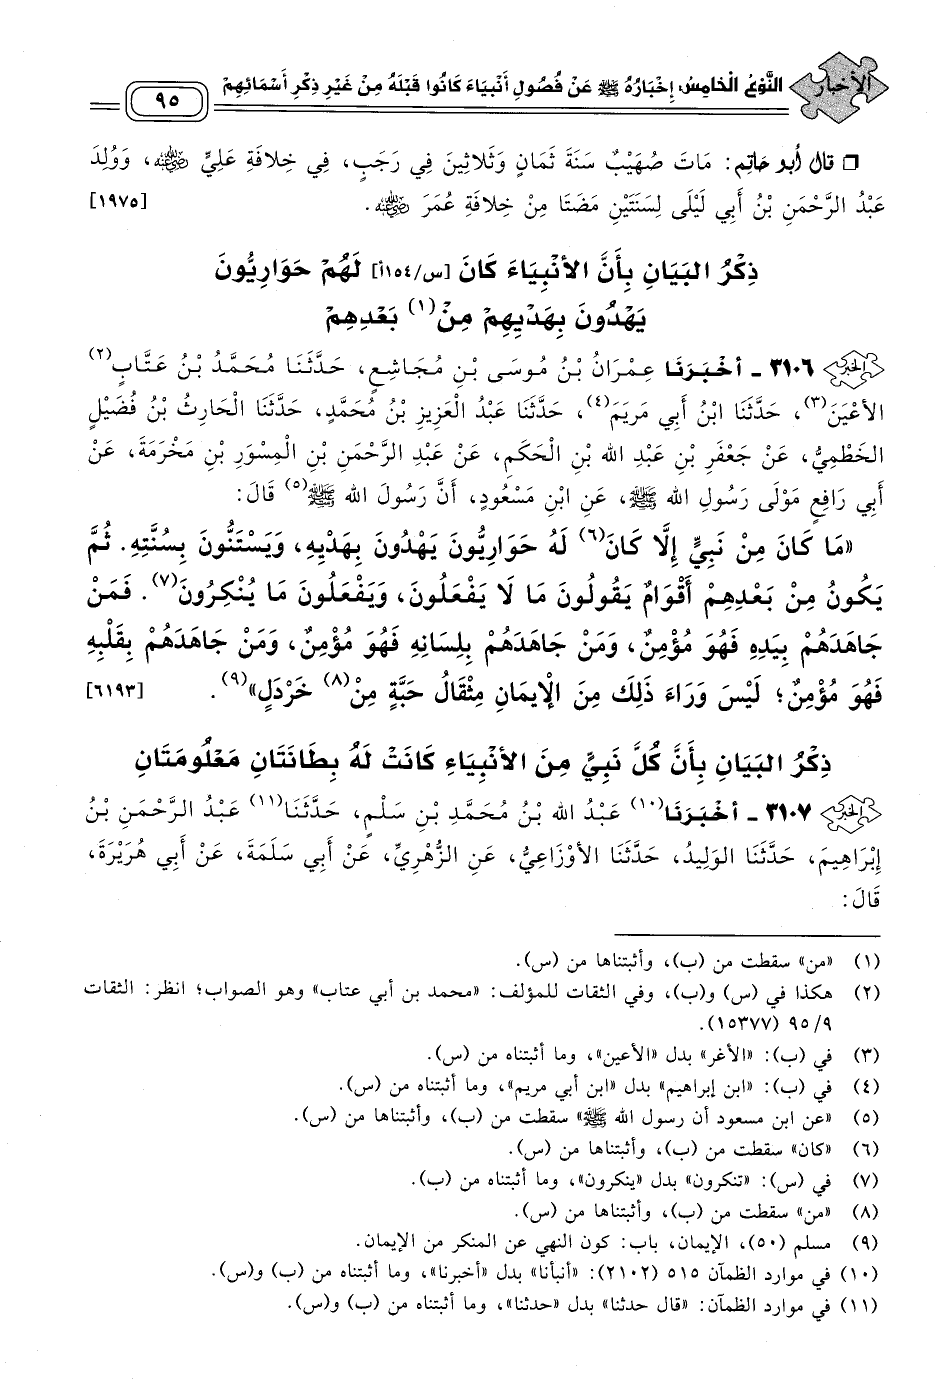 الأخبار
النَّوْعُ الْخَامِسُ: إِخْبَارُهُ ﷺ عَنْ فُصُولِ أَنْبِيَاءَ كَانُوا قَبْلَهُ مِنْ غَيْرِ ذِكْرِ أَسْمَائِهِمْ
٩٥
❒ قال أبو حاتم: مَاتَ صُهَيْبٌ سَنَةَ ثَمَانٍ وَثَلَاثِينَ فِي رَجَبٍ، فِي خِلَافَةِ عَلِيٍّ رضي الله عنه، وَوُلِدَ
عَبْدُ الرَّحْمَنِ بْنُ أَبِي لَيْلَى لِسَنَتَيْنِ مَضَتَا مِنْ خِلَافَةِ عُمَرَ رضي الله عنه. [١٩٧٥]
ذِكْرُ البَيَانِ بِأَنَّ الأَنْبِيَاءَ كَانَ [س/١٥٤أ] لَهُمْ حَوَارِيُّونَ
يَهْدُونَ بِهَدْيِهِمْ مِنْ(١) بَعْدِهِمْ
٣١٠٦ - أَخْبَرَنَا عِمْرَانُ بْنُ مُوسَى بْنِ مُجَاشِعٍ، حَدَّثَنَا مُحَمَّدُ بْنُ عَتَّابٍ(٢)
الأَعْيَنَ(٣)، حَدَّثَنَا ابْنُ أَبِي مَرْيَمَ(٤)، حَدَّثَنَا عَبْدُ الْعَزِيزِ بْنُ مُحَمَّدٍ، حَدَّثَنَا الْحَارِثُ بْنُ فُضَيْلٍ
الخَطْمِيُّ، عَنْ جَعْفَرِ بْنِ عَبْدِ اللهِ بْنِ الْحَكَمِ، عَنْ عَبْدِ الرَّحْمَنِ بْنِ الْمِسْوَرِ بْنِ مَخْرَمَةَ، عَنْ
أَبِي رَافِعٍ مَوْلَى رَسُولِ اللهِ ﷺ، عَنِ ابْنِ مَسْعُودٍ، أَنَّ رَسُولَ اللهِ ﷺ(٥) قَالَ:
«مَا كَانَ مِنْ نَبِيٍّ إِلَّا كَانَ(٦) لَهُ حَوَارِيُّونَ يَهْدُونَ بِهَدْيِهِ، وَيَسْتَنُّونَ بِسُنَّتِهِ. ثُمَّ
يَكُونُ مِنْ بَعْدِهِمْ أَقْوَامٌ يَقُولُونَ مَا لَا يَفْعَلُونَ، وَيَفْعَلُونَ مَا يُنْكِرُونَ(٧). فَمَنْ
جَاهَدَهُمْ بِيَدِهِ فَهُوَ مُؤْمِنٌ، وَمَنْ جَاهَدَهُمْ بِلِسَانِهِ فَهُوَ مُؤْمِنٌ، وَمَنْ جَاهَدَهُمْ بِقَلْبِهِ
فَهُوَ مُؤْمِنٌ؛ لَيْسَ وَرَاءَ ذَلِكَ مِنَ الإِيمَانِ مِثْقَالُ حَبَّةٍ مِنْ(٨) خَرْدَلٍ»(٩). [٦١٩٣]
ذِكْرُ البَيَانِ بِأَنَّ كُلَّ نَبِيٍّ مِنَ الأَنْبِيَاءِ كَانَتْ لَهُ بِطَانَتَانِ مَعْلُومَتَانِ
٣١٠٧ - أَخْبَرَنَا(١٠) عَبْدُ اللهِ بْنُ مُحَمَّدِ بْنِ سَلْمٍ، حَدَّثَنَا(١١) عَبْدُ الرَّحْمَنِ بْنُ
إِبْرَاهِيمَ، حَدَّثَنَا الوَلِيدُ، حَدَّثَنَا الأَوْزَاعِيُّ، عَنِ الزُّهْرِيِّ، عَنْ أَبِي سَلَمَةَ، عَنْ أَبِي هُرَيْرَةَ،
قَالَ:
(١) «من» سقطت من (ب)، وأثبتناها من (س).
(٢) هكذا في (س) و(ب)، وفي الثقات للمؤلف: «محمد بن أبي عتاب» وهو الصواب؛ انظر: الثقات
٩/ ٩٥ (١٥٣٧٧).
(٣) في (ب): «الأغر» بدل «الأعين»، وما أثبتناه من (س).
(٤) في (ب): «ابن إبراهيم» بدل «ابن أبي مريم»، وما أثبتناه من (س).
(٥) «عن ابن مسعود أن رسول الله ﷺ» سقطت من (ب)، وأثبتناها من (س).
(٦) «كان» سقطت من (ب)، وأثبتناها من (س).
(٧) في (س): «تنكرون» بدل «ينكرون»، وما أثبتناه من (ب).
(٨) «من» سقطت من (ب)، وأثبتناها من (س).
(٩) مسلم (٥٠)، الإيمان، باب: كون النهي عن المنكر من الإيمان.
(١٠) في موارد الظمآن ٥١٥ (٢١٠٢): «أنبأنا» بدل «أخبرنا»، وما أثبتناه من (ب) و(س).
(١١) في موارد الظمآن: «قال حدثنا» بدل «حدثنا»، وما أثبتناه من (ب) و(س).